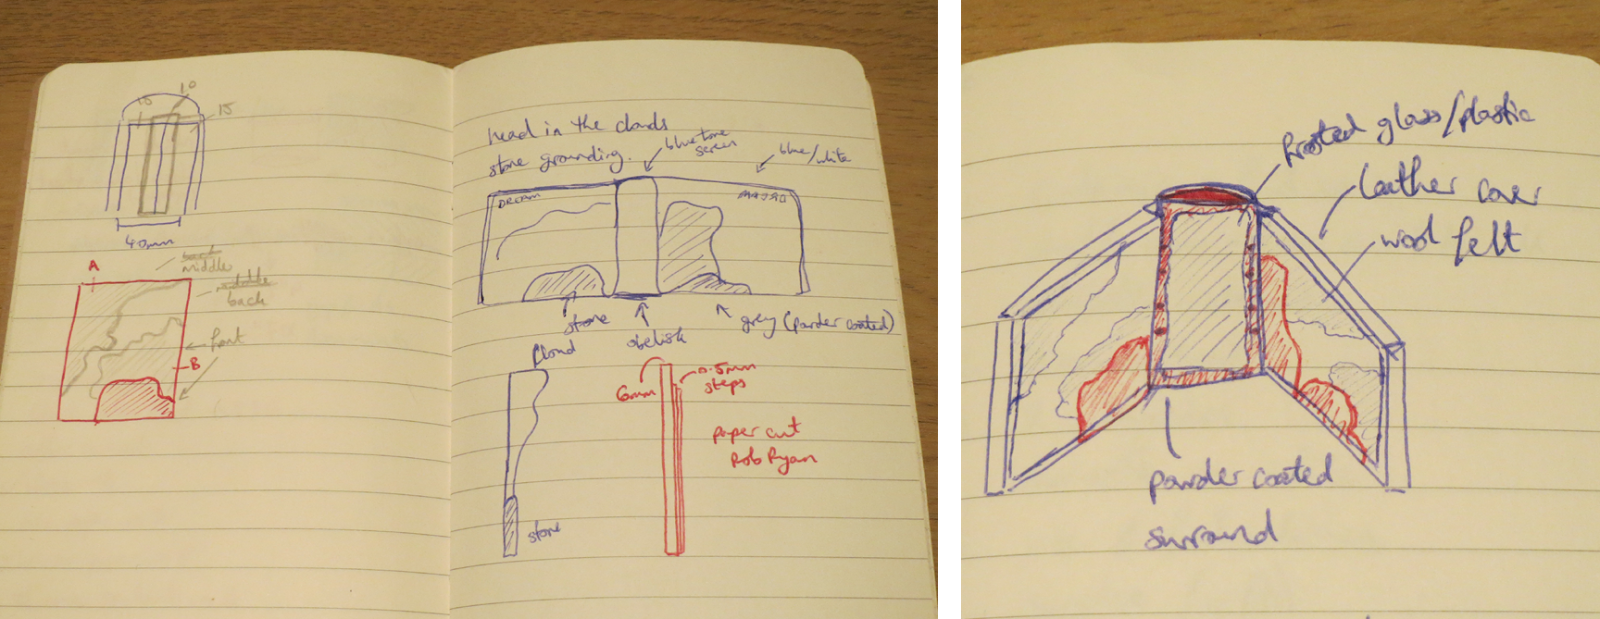 10
10
15
40mm
A
back
middle
middle
back
front
B
head in the clouds
stone grounding.
blue tone
screen
blue/white
DREAM
stone
obelisk
grey (powder coated)
cloud
stone
6mm
0.5mm
steps
paper cut
Rob Ryan
frosted glass/plastic
leather cover
wool felt
powder coated
surround